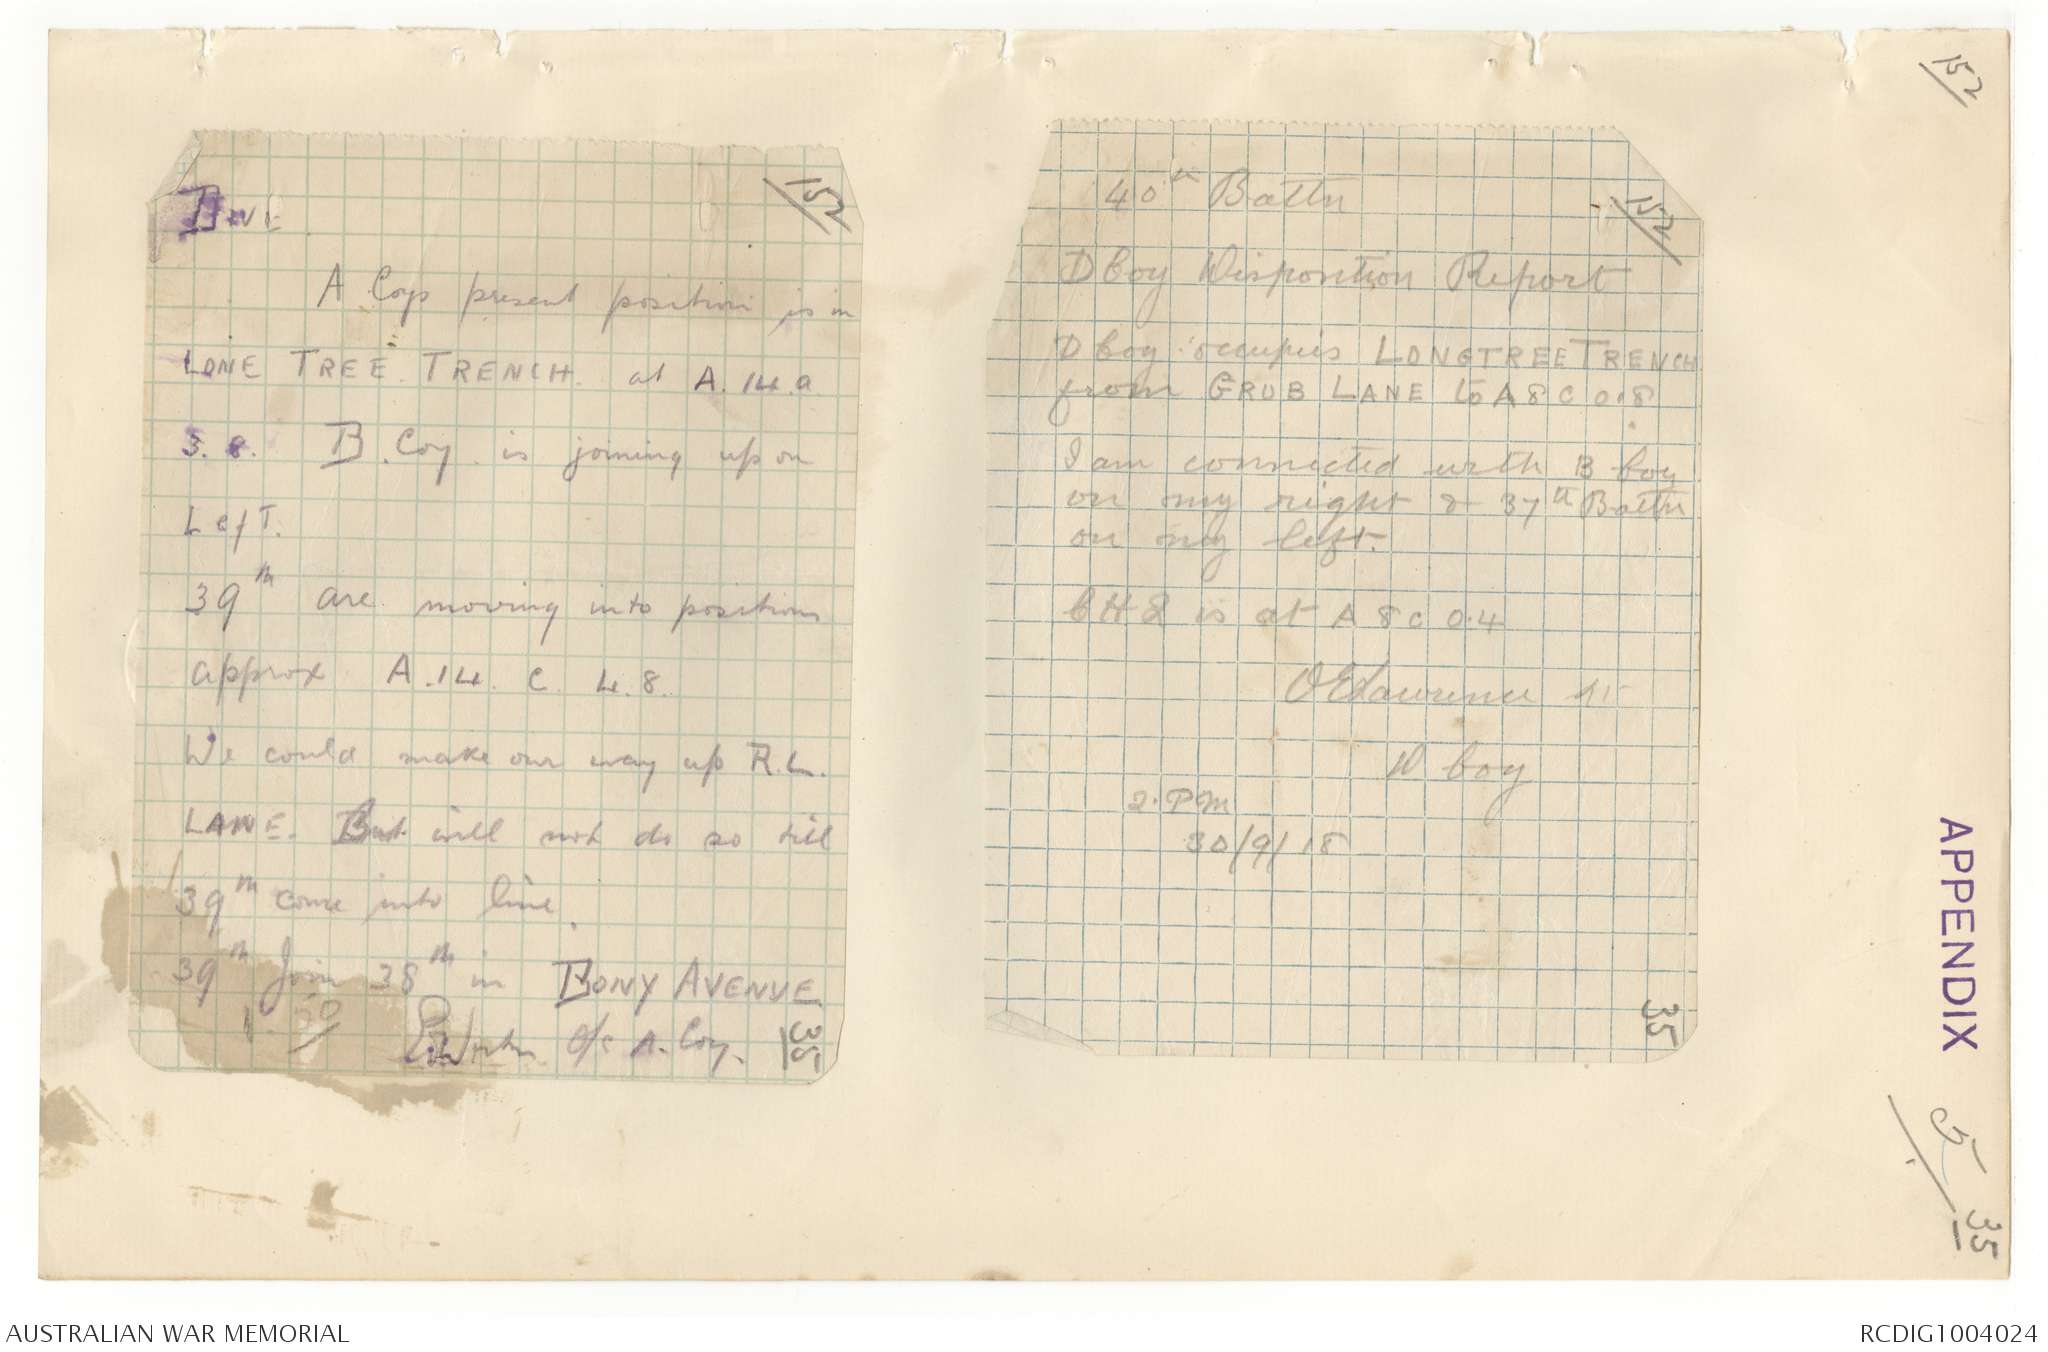 152
A Coys present position is in
LONE TREE TRENCH. at A.14.a.
3.8. B. Coy. is joining up on
Left.
39th are moving into positions
approx A.14. c. 4.8.
We could make our way up R.L.
LANE. But will not do so till
39th come into line.
39th Join 38th in BONY AVENUE
O/c A. Coy.
35
40th Battn
152
D Coy Disposition Report
D Coy occupies LONGTREE TRENCH
from GRUB LANE to A 8 C 0.8
I am connected with B Coy
on my right & 37th Battn
on my left.
CHQ is at A 8 c 0.4
Lawrence Lt
D Coy
2. PM
30/9/18
35
152
APPENDIX
5
35
AUSTRALIAN WAR MEMORIAL
RCDIG1004024